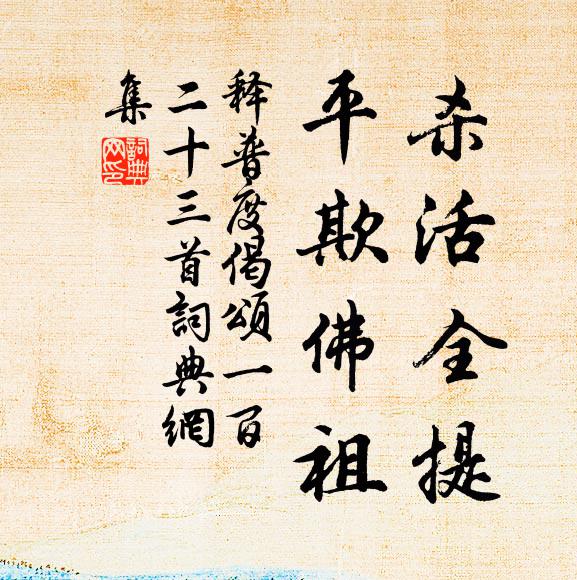 杀活全提
平欺佛祖
释普度偈颂一百
二十三首詞典網
集
詞典網印